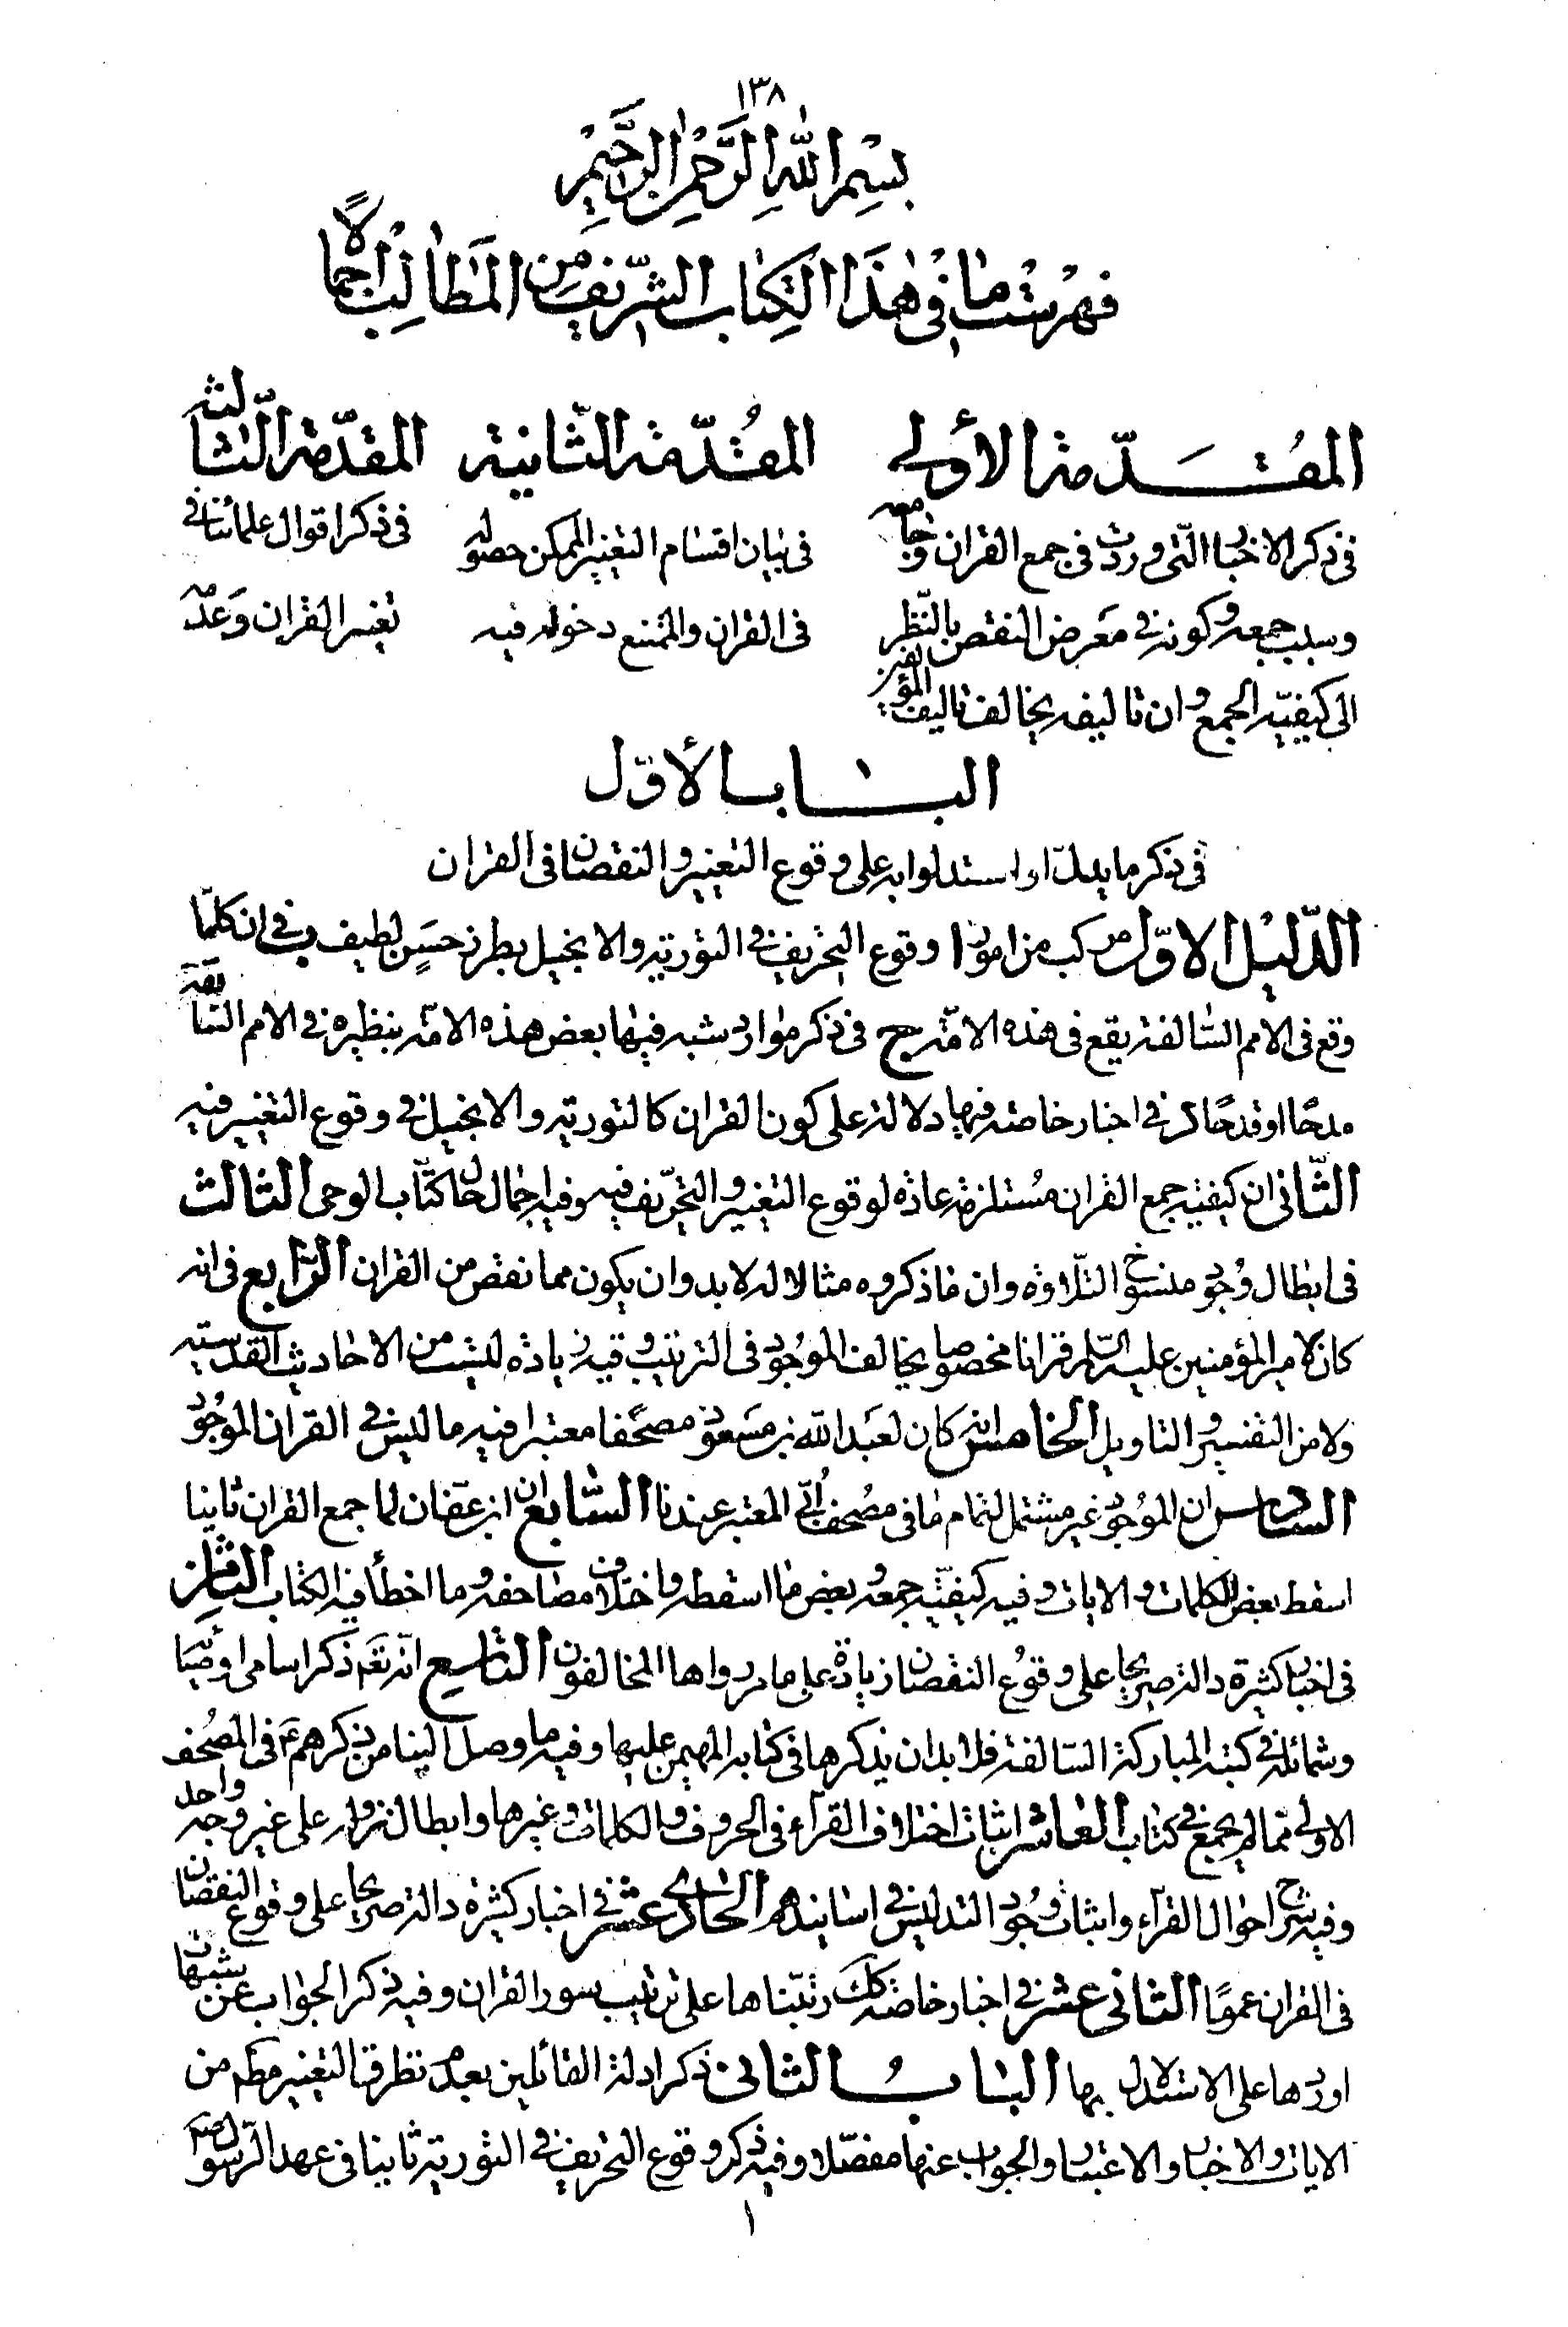 ١٣٨
بِسْمِ اللهِ الرَّحْمنِ الرَّحِيْمِ
فهرست ما في هذا الكتاب الشريف من المطالب اجمالاً
المقدّمة الأولى
في ذكر الاخبار التي وردت في جمع القران وجامعه
وسبب جمعه وكونه في معرض النقص بالنّظر
الى كيفيّة الجمع وان تاليفه يخالف تاليف المؤلفين
المقدّمة الثّانية
في بيان اقسام التغيير الممكن حصوله
في القران والممتنع دخوله فيه
المقدّمة الثّالثة
في ذكر اقوال علمائنا في
تغيير القران وعدمه
الباب الأوّل
في ذكر ما يدلّ او استدلوا به على وقوع التغيير والنقصان في القران
الدّليل الاوّل مركب من امور ا وقوع التحريف في التورية والانجيل بطرز حسن لطيف ب في ان كلّما
وقع في الامم السّالفة يقع في هذه الامّة ج في ذكر موارد شبه فيها بعض هذه الامّة بنظيره في الامم السّابقة
مدحًا او قدحًا د في اخبار خاصة فيها دلالة على كون القران كالتورية والانجيل في وقوع التغيير فيه
الثّاني ان كيفيّة جمع القران مستلزمة عادة لوقوع التغيير والتحريف فيه وفيه اجمال حال كتّاب الوحى الثالث
في ابطال وجود منسوخ التلاوة وان ما ذكروه مثالا له لا بد وان يكون مما نقص من القران الرّابع في انه
كان لامير المؤمنين عليه السّلم قرانا مخصوصا يخالف الموجود في الترتيب وفيه زيادة ليست من الاحاديث القدسية
ولا من التفسير والتاويل الخامس انه كان لعبد الله بن مسعود مصحفا معتبرا فيه ما ليس في القران الموجود
السّادس ان الموجود غير مشتمل لتمام ما في مصحف أبيّ المعتبر عندنا السّابع ان ابن عفّان لما جمع القران ثانيا
اسقط بعض الكلمات والايات وفيه كيفيّة جمعه وبعض ما اسقطه واختلاف مصاحفه وما اخطأ فيه الكتاب الثامن
في اخبار كثيرة دالة صريحا على وقوع النقصان زيادة على ما مر رواها المخالفون التاسع انه تعم ذكر اسامي اوصيائه
وشمائله في كتبه المباركة السّالفة فلا بد ان يذكرها في كتابه المهيمن عليها وفيه ما وصل الينا من ذكرهم ع في الصحف
الاولى ممّا لم يجمع في كتاب العاشر اثبات اختلاف القرّاء في الحروف والكلمات وغيرها وابطال نزوله على غير وجه واحد
وفيه شرح احوال القرّاء واثبات وجود التدليس في اسانيدهم الحادي عشر في اخبار كثيرة دالة صريحا على وقوع النقصان
في القران عموما الثاني عشر في اخبار خاصة كك رتّبناها على ترتيب سور القران وفيه ذكر الجواب عن شبهات
اوردها على الاستدلال بها الباب الثاني في ذكر ادلة القائلين بعدم تطرق التغيير مطم من
الايات والاخبار والاعتبار والجواب عنها مفصّلا وفيه ذكر وقوع التحريف في التورية ثانيا في عهد الرسول صم
١